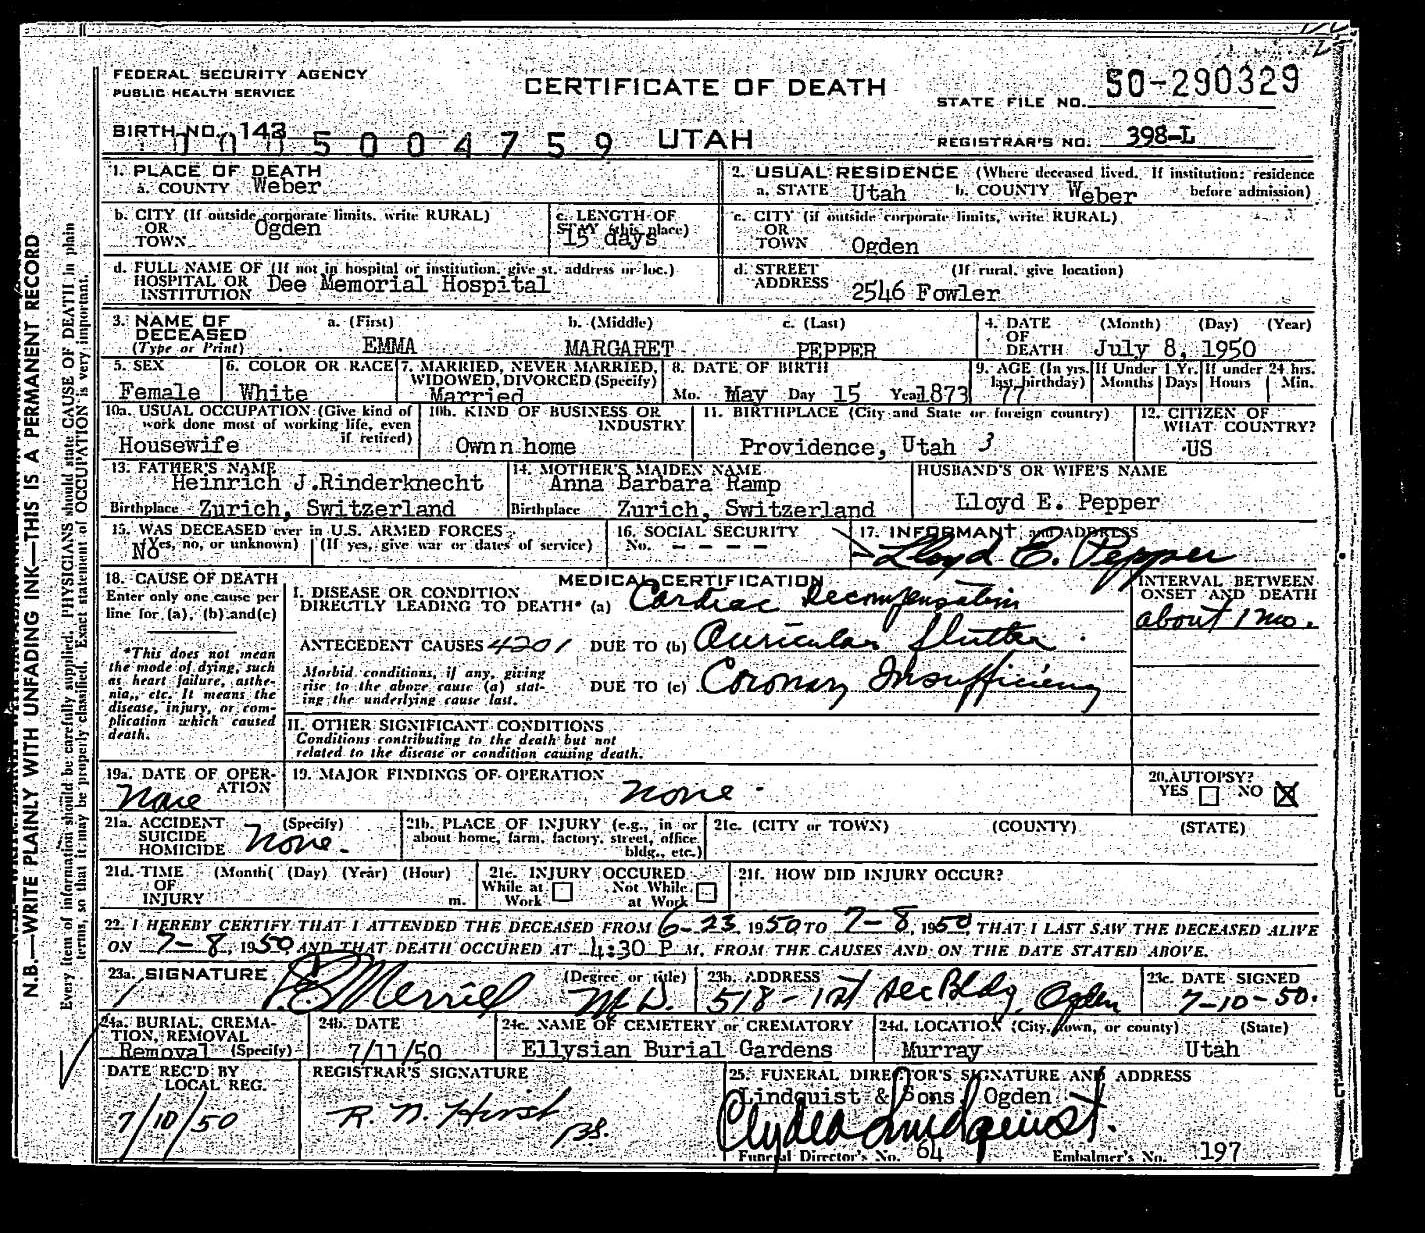 FEDERAL SECURITY AGENCY
PUBLIC HEALTH SERVICE
CERTIFICATE OF DEATH
STATE FILE NO. 50-290329
BIRTH NO. 143
0005004759 UTAH
REGISTRAR'S NO. 398-L
1. PLACE OF DEATH
a. COUNTY Weber
2. USUAL RESIDENCE (Where deceased lived. If institution: residence before admission)
a. STATE Utah b. COUNTY Weber
b. CITY (If outside corporate limits, write RURAL)
OR TOWN Ogden
c. LENGTH OF STAY (this place)
15 days
c. CITY (if outside corporate limits, write RURAL)
OR TOWN Ogden
d. FULL NAME OF (If not in hospital or institution, give st. address or loc.)
HOSPITAL OR INSTITUTION Dee Memorial Hospital
d. STREET ADDRESS (If rural, give location)
2546 Fowler
3. NAME OF DECEASED (Type or Print)
a. (First) EMMA
b. (Middle) MARGARET
c. (Last) PEPPER
4. DATE OF DEATH (Month) (Day) (Year)
July 8, 1950
5. SEX
Female
6. COLOR OR RACE
White
7. MARRIED, NEVER MARRIED, WIDOWED, DIVORCED (Specify)
Married
8. DATE OF BIRTH
Mo. May Day 15 Year 1873
9. AGE (In yrs. last birthday)
77
If Under 1 Yr. Months Days
If under 24 hrs. Hours Min.
10a. USUAL OCCUPATION (Give kind of work done most of working life, even if retired)
Housewife
10b. KIND OF BUSINESS OR INDUSTRY
Own n home
11. BIRTHPLACE (City and State or foreign country)
Providence, Utah 3
12. CITIZEN OF WHAT COUNTRY?
US
13. FATHER'S NAME
Heinrich J.Rinderknecht
Birthplace Zurich, Switzerland
14. MOTHER'S MAIDEN NAME
Anna Barbara Ramp
Birthplace Zurich, Switzerland
HUSBAND'S OR WIFE'S NAME
Lloyd E. Pepper
15. WAS DECEASED ever in U.S. ARMED FORCES
(Yes, no, or unknown) (If yes, give war or dates of service)
No
16. SOCIAL SECURITY
No. - - - -
17. INFORMANT and ADDRESS
Lloyd E. Pepper
18. CAUSE OF DEATH
Enter only one cause per line for (a), (b) and (c)
*This does not mean the mode of dying, such as heart failure, asthenia, etc. It means the disease, injury, or complication which caused death.
MEDICAL CERTIFICATION
I. DISEASE OR CONDITION DIRECTLY LEADING TO DEATH* (a) Cardiac Decompensation
ANTECEDENT CAUSES 4201 DUE TO (b) Auricular flutter
Morbid conditions, if any, giving rise to the above cause (a) stating the underlying cause last.
DUE TO (c) Coronary Insufficiency
INTERVAL BETWEEN ONSET AND DEATH
about 1 mo.
II. OTHER SIGNIFICANT CONDITIONS
Conditions contributing to the death but not related to the disease or condition causing death.
19a. DATE OF OPERATION
None
19. MAJOR FINDINGS OF OPERATION
None
20. AUTOPSY?
YES NO X
21a. ACCIDENT SUICIDE HOMICIDE (Specify)
None.
21b. PLACE OF INJURY (e.g., in or about home, farm, factory, street, office bldg., etc.)
21c. (CITY or TOWN) (COUNTY) (STATE)
21d. TIME OF INJURY (Month( (Day) (Year) (Hour) m.
21e. INJURY OCCURED
While at Work Not While at Work
21f. HOW DID INJURY OCCUR?
22. I HEREBY CERTIFY THAT I ATTENDED THE DECEASED FROM 6-23, 1950 TO 7-8, 1950, THAT I LAST SAW THE DECEASED ALIVE
ON 7-8, 1950, AND THAT DEATH OCCURED AT 4:30 P M, FROM THE CAUSES AND ON THE DATE STATED ABOVE.
23a. SIGNATURE (Degree or title)
Merrill M.D.
23b. ADDRESS
518 - 1st Sec Bldg. Ogden
23c. DATE SIGNED
7-10-50.
24a. BURIAL, CREMATION, REMOVAL (Specify)
Removal
24b. DATE
7/11/50
24c. NAME OF CEMETERY or CREMATORY
Ellysian Burial Gardens
24d. LOCATION (City, town, or county) (State)
Murray Utah
DATE REC'D BY LOCAL REG.
7/10/50
REGISTRAR'S SIGNATURE
R. N. Hirst
25. FUNERAL DIRECTOR'S SIGNATURE AND ADDRESS
Lindquist & Sons, Ogden
Lindquist.
Funeral Director's No. 64 Embalmer's No. 197
N.B.—WRITE PLAINLY WITH UNFADING INK—THIS IS A PERMANENT RECORD
Every item of information should be carefully supplied. PHYSICIANS should state CAUSE OF DEATH in plain
terms, so that it may be properly classified. Exact statement of OCCUPATION is very important.